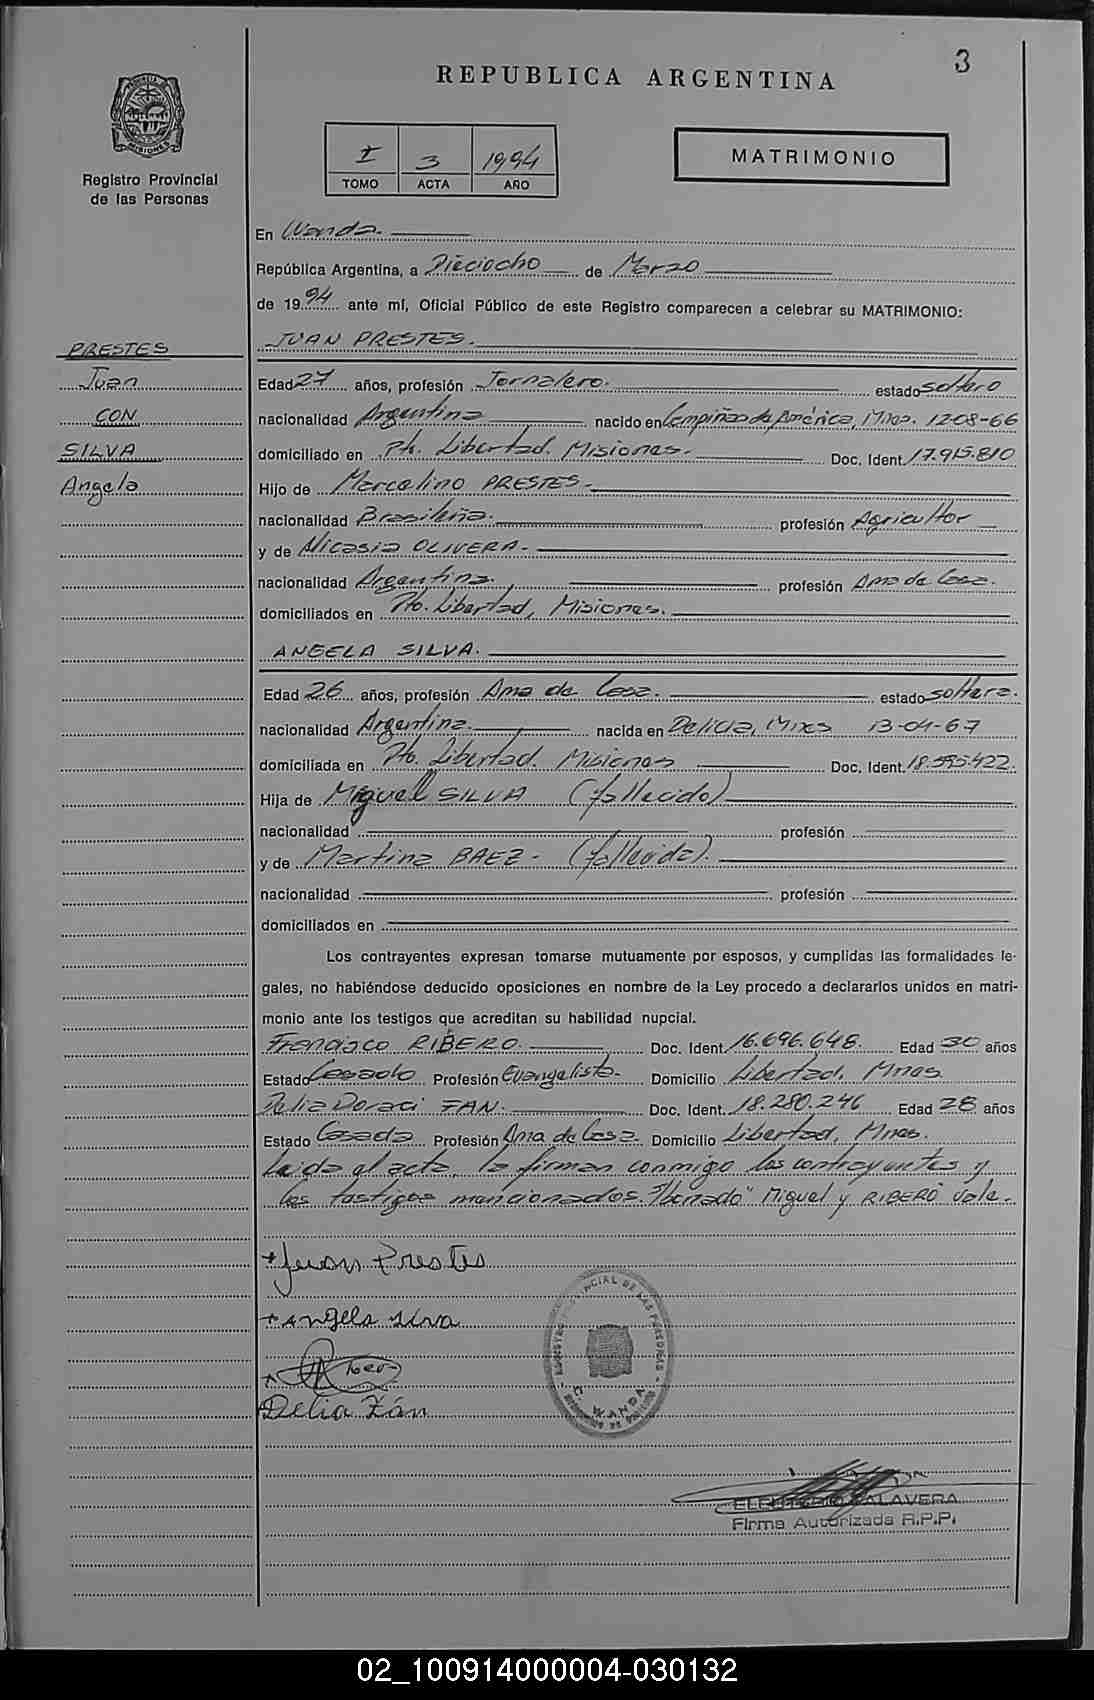 3
REPUBLICA ARGENTINA
MISIONES
Registro Provincial
de las Personas
I 3 1994
TOMO ACTA AÑO
MATRIMONIO
En Wanda.
República Argentina, a Dieciocho de Marzo
de 1994 ante mí, Oficial Público de este Registro comparecen a celebrar su MATRIMONIO:
JUAN PRESTES.
PRESTES
Juan
CON
SILVA
Angela
Edad 27 años, profesión Jornalero. estado soltero
nacionalidad Argentina nacido en Campiñas de América, Mnes. 12-08-66
domiciliado en Pto. Libertad. Misiones. Doc. Ident. 17.915.810
Hijo de Marcelino PRESTES.
nacionalidad Brasileña. profesión Agricultor
y de Nicasia OLIVERA.
nacionalidad Argentina. profesión Ama de Casa.
domiciliados en Pto. Libertad, Misiones.
ANGELA SILVA.
Edad 26 años, profesión Ama de Casa. estado soltera.
nacionalidad Argentina. nacida en Delicia, Mnes 13-04-67
domiciliada en Pto. Libertad. Misiones Doc. Ident. 18.595.422.
Hija de Miguel SILVA (fallecido)
nacionalidad profesión
y de Martina BAEZ - (fallecida).
nacionalidad profesión
domiciliados en
Los contrayentes expresan tomarse mutuamente por esposos, y cumplidas las formalidades le-
gales, no habiéndose deducido oposiciones en nombre de la Ley procedo a declararlos unidos en matri-
monio ante los testigos que acreditan su habilidad nupcial.
Francisco RIBERO. Doc. Ident. 16.696.648. Edad 30 años
Estado Casado Profesión Evangelista. Domicilio Libertad, Mnes
Delia Doraci FAN. Doc. Ident. 18.280.246 Edad 28 años
Estado Casada Profesión Ama de Casa. Domicilio Libertad, Mnes.
Leida el acta, la firman conmigo los contrayentes y
los testigos mencionados. "borrado" Miguel y RIBERO vale.
+ Juan Prestes
+ Angela silva
Delia Zán
REGISTRO PROVINCIAL DE LAS PERSONAS
WANDA
TALAVERA
Firma Autorizada R.P.P.
02_100914000004-030132